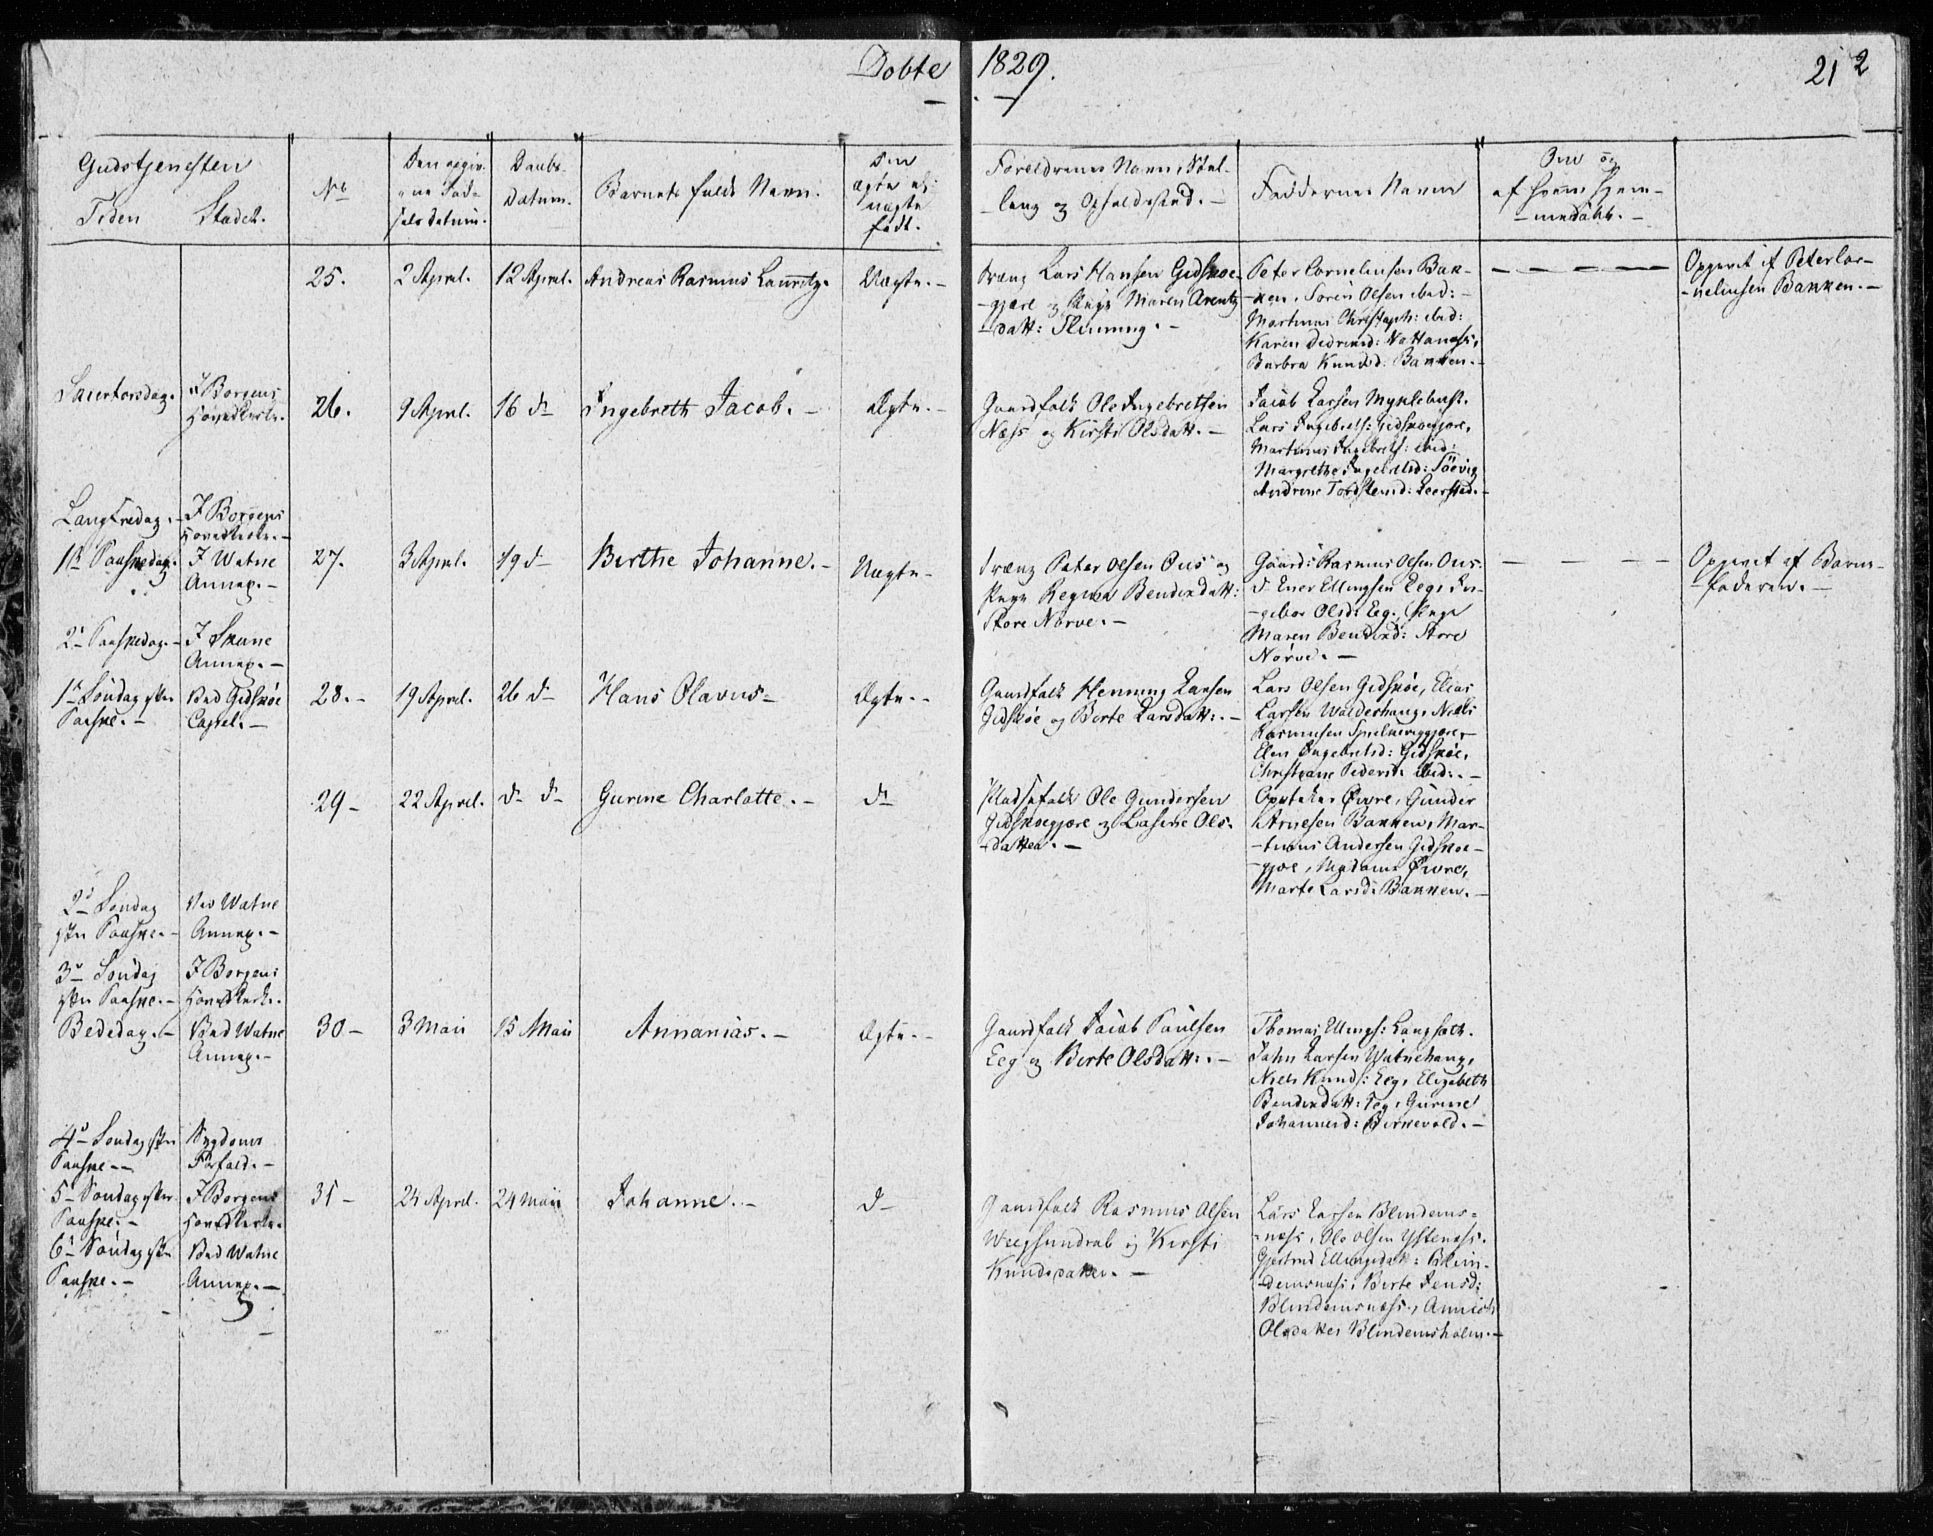 Døbte 1829.
212
Gudstjenesten
Tiden Stædet.
No
Den opgiv-
ne Fød-
sels Datum.
Daabs-
Datum.
Barnets fulde Navn.
Om
ægte el:
uægte
født.
Foreldrenes Navn, Stil-
ling og Opholdssted.
Faddernes Navne
Om og
af hvem hjem-
medøbt.
25. 2 April. 12 April. Andreas Rasmus Lauritz. Uægte.
Dreng Lars Hansen Gidskoe-
gjære og Pige Maren Arentz
datt: Flemming.
Peter Cornelinsen Bak-
ken, Søren Olsen ibid:
Martinus Christoph: ibid:
Karen Didriksd:
Barbra Knudsd. Bakken.
Opgivet af Peter Cor-
nelinsen Bakken.
Skiertorsdag. I Borgens
Hovedkirke.
26. 9 April. 16 d Ingebreth Jacob. Ægte.
Gaardfolk Ole Ingebretsen
Næss og Kirsti Olsdatt.
Jacob Larsen Myklebust.
Lars Ingebrets: Gidskoegjære,
Martinus Ingebrets: ibid:
Margrethe Ingebretsd: Söevig
Andrine Tordstensd: Leerstad.
Langfredag. I Borgens
Hovedkirke.
1ste Paaskedag. I Watne
Annex.
27. 3 April. 19 d Birthe Johanne. Uægte
Dreng Peter Olsen Ous og
Pige Regina Bendixdatt:
Store Nørve.
Gaardm Rasmus Olsen Ous.
d Ener Ellingsen Eeg, In-
gebor Olsd: Eeg, Pige
Maren Bendixd: Store
Nørve.
Opgivet af Barne-
faderen.
2den Paaskedag. I Skune
Annex.
1ste Söndag efter
Paaske.
Ved Gidskøe
Capel.
28. 19 April. 26 d Hans Olavus Ægte.
Gaardfolk Henning Larsen
Gidskøe og Berte Larsdatt:.
Lars Olsen Gidskøe, Elias
Larsen Walderhaug, Niels
Rasmusen
Elen Ingebretsd: Gidskøe,
Christiane Pedersd. ibid:.
29 22 April. d d Gurine Charlotte. d
Pladsfolk Ole Gundersen
Gidskoegjære og Lasine Ols-
datter.
Øvre, Gunder
Arnesen Bakken, Mar-
tinus Andersen Gidskoe-
gjøe, Madame Øvre,
Marte Larsd: Bakken.
2den Söndag
efter Paaske.
Ved Watne
Annex.
3die Söndag
efter Paaske.
I Borgens
Hovedkirk.
Bededag. Ved Watne
Annex.
30 3 Maii 15 Maii Annanias. Ægte.
Gaardfolk Jacob Paulsen
Eeg og Berte Olsdatt:.
Thomas Ellings: Langsæth.
John Larsen Watnehaug,
Niels Knuds: Eeg, Elizabeth
Bendixdatt: Eeg, Gurine
Johannesd: Birkevold.
4de Söndag efter
Paaske
Sygdoms
Forfald.
5te Söndag efter
Paaske.
I Borgens
Hovedkirke.
31 24 April. 24 Maii Johanne. d
Gaardfolk Rasmus Olsen
Weegsundral og Kirsti
Knudsdatter.
Lars Larsen Blindems-
næss, Ole Olsen Ystenæss.
Gjertrud Ellingsdatt: Blin-
demsnæss, Berte Jensd:
Blindemsnæss, Annich
Olsdatter Blindemsholm.
6te Söndag efter
Paaske.
Ved Watne
Annex.